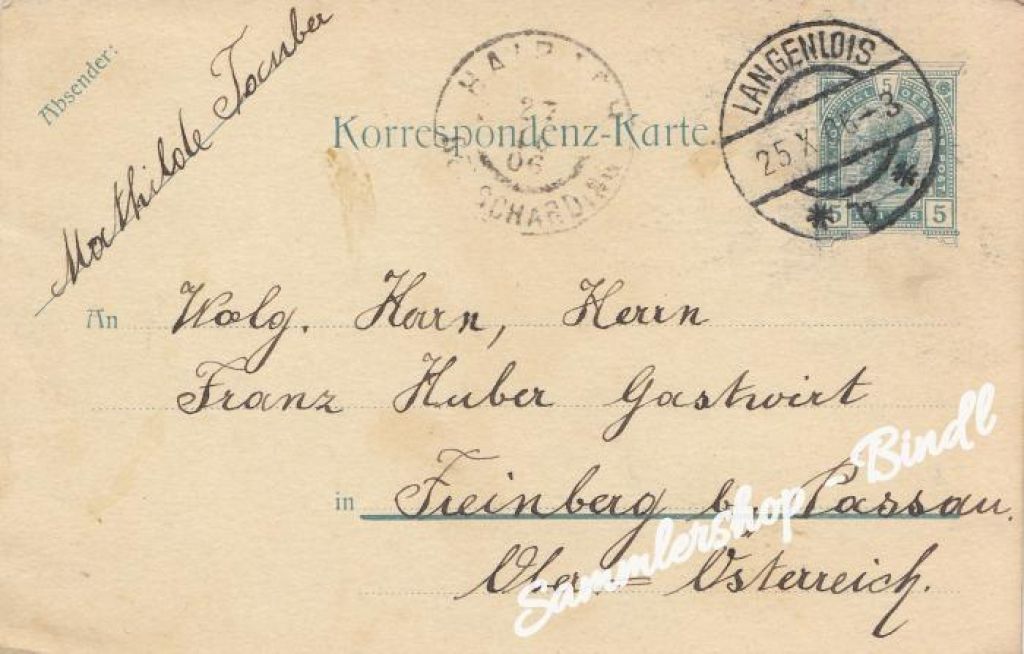 Absender:
Mathilde Tauber
Korrespondenz-Karte.
LANGENLOIS
25.X.06-3
* 5 *
06
SCHARDING
5
5 HELLER 5
An Wolg. Karn, Herrn
Franz Huber Gastwirt
in Freinberg b. Passau.
Ober= Österreich.
Sammlershop - Bindl